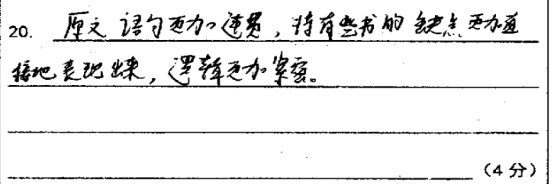 20. 原文语句更加连贯,将有些书的缺点更加直
接地表现出来,逻辑更加紧密。
(4分)